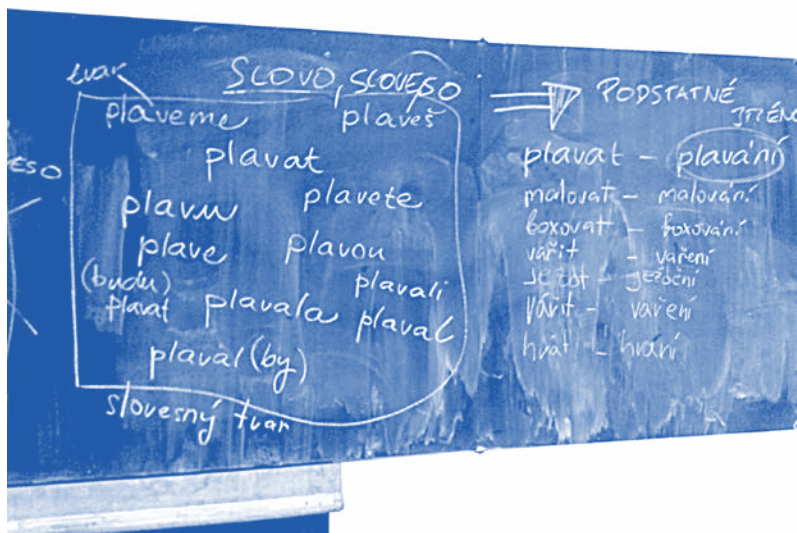 tvar
SLOVO, SLOVESO
plaveme plaveš
plavat
plavu plavete
plave plavou
(budu) plavali
plavat plavala plaval
plaval (by)
slovesný tvar
ESO
PODSTATNÉ
JMÉNO
plavat – plavání
malovat – malování
boxovat – boxování
vařit – vaření
jezdit – ježdění
vařit – vaření
hrát – hraní